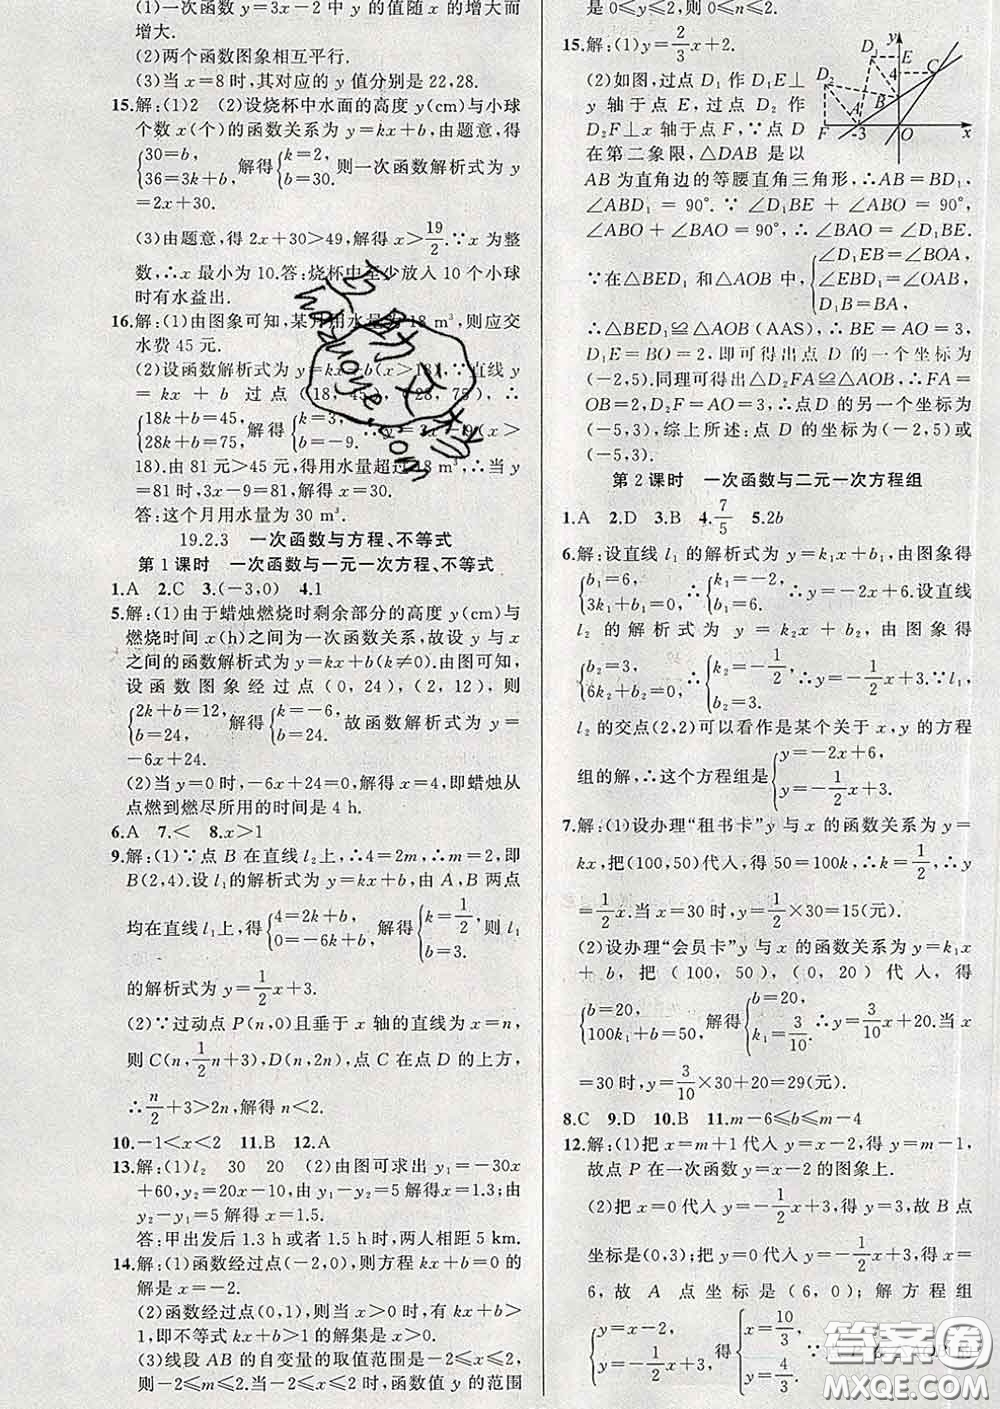 (1)一次函数 y=3x-2 中 y 的值随 x 的增大而
增大.
(2)两个函数图象相互平行.
(3)当 x=8 时,其对应的 y 值分别是 22,28.
15.解:(1)2 (2)设烧杯中水面的高度 y(cm)与小球
个数 x(个)的函数关系为 y=kx+b,由题意,得
{30=b, 36=3k+b, 解得{k=2, b=30. 则一次函数解析式为 y
=2x+30.
(3)由题意,得 2x+30>49,解得 x>19/2.∵x 为整
数,∴x 最小为 10.答:烧杯中至少放入 10 个小球
时有水溢出.
16.解:(1)由图象可知,某月用水量为 18 m³,则应交
水费 45 元.
(2)设函数解析式为 y=kx+b(x>18),∵直线
y=kx+b 过点(18,45),(28,75),∴
{18k+b=45, 28k+b=75, 解得{k=3, b=-9. ∴y=3x-9(x>
18).由 81 元>45 元,得用水量超过 18 m³,∴当 y
=81 时,3x-9=81,解得 x=30.
答:这个月用水量为 30 m³.
19.2.3 一次函数与方程、不等式
第 1 课时 一次函数与一元一次方程、不等式
1.A 2.C 3.(-3,0) 4.1
5.解:(1)由于蜡烛燃烧时剩余部分的高度 y(cm)与
燃烧时间 x(h)之间为一次函数关系,故设 y 与 x
之间的函数解析式为 y=kx+b(k≠0).由图可知,
设函数图象经过点(0,24),(2,12),则
{2k+b=12, b=24. 解得{k=-6, b=24. 故函数解析式为 y=
-6x+24.
(2)当 y=0 时,-6x+24=0,解得 x=4,即蜡烛从
点燃到燃尽所用的时间是 4 h.
6.A 7.< 8.x>1
9.解:(1)∵点 B 在直线 l₂上,∴4=2m,∴m=2,即
B(2,4).设 l₁的解析式为 y=kx+b,由 A,B 两点
均在直线 l₁上,得{4=2k+b, 0=-6k+b, 解得{k=1/2, b=3. 则 l₁
的解析式为 y=1/2x+3.
(2)∵过动点 P(n,0)且垂于 x 轴的直线为 x=n,
则 C(n,1/2n+3),D(n,2n),点 C 在点 D 的上方,
∴n/2+3>2n,解得 n<2.
10.-1<x<2 11.B 12.A
13.解:(1)l₂ 30 20 (2)由图可求出 y₁=-30x
+60,y₂=20x-10,由 y₁-y₂=5 解得 x=1.3;由
y₂-y₁=5 解得 x=1.5.
答:甲出发后 1.3 h 或者 1.5 h 时,两人相距 5 km.
14.解:(1)函数经过点(-2,0),则方程 kx+b=0 的
解是 x=-2.
(2)函数经过点(0,1),则当 x>0 时,有 kx+b>
1,即不等式 kx+b>1 的解集是 x>0.
(3)线段 AB 的自变量的取值范围是-2≤x≤2,
则-2≤m≤2.当-2≤x≤2 时,函数值 y 的范围
是 0≤y≤2,则 0≤n≤2.
15.解:(1)y=2/3x+2.
(2)如图,过点 D₁ 作 D₁E⊥
y 轴于点 E,过点 D₂ 作
D₂F⊥x 轴于点 F,∵点 D
在第二象限,△DAB 是以
AB 为直角边的等腰直角三角形,∴AB=BD₁,
∠ABD₁=90°.∵∠D₁BE+∠ABO=90°,
∠BAO+∠ABO=90°,∴∠BAO=∠D₁BE.
∵在△BED₁ 和△AOB 中,{∠D₁EB=∠BOA, ∠EBD₁=∠OAB, D₁B=BA,
∴△BED₁≌△AOB(AAS),∴BE=AO=3,
D₁E=BO=2,即可得出点 D 的一个坐标为
(-2,5).同理可得出△D₂FA≌△AOB,∴FA=
OB=2,D₂F=AO=3,∴点 D 的另一个坐标为
(-5,3),综上所述:点 D 的坐标为(-2,5)或
(-5,3).
y D₁ E C D₂ B A F -3 O x
第 2 课时 一次函数与二元一次方程组
1.A 2.D 3.B 4.7/5 5.2b
6.解:设直线 l₁ 的解析式为 y=k₁x+b₁,由图象得
{b₁=6, 3k₁+b₁=0, ∴{k₁=-2, b₁=6. ∴y=-2x+6.设直线
l₂ 的解析式为 y=k₂x+b₂,由图象得
{b₂=3, 6k₂+b₂=0, ∴{k₂=-1/2, b₂=3. ∴y=-1/2x+3.∵l₁,
l₂ 的交点(2,2)可以看作是某个关于 x,y 的方程
组的解,∴这个方程组是{y=-2x+6, y=-1/2x+3.
7.解:(1)设办理“租书卡”y 与 x 的函数关系为 y=
kx,把(100,50)代入,得 50=100k,∴k=1/2,∴y
=1/2x.当 x=30 时,y=1/2×30=15(元).
(2)设办理“会员卡”y 与 x 的函数关系为 y=k₁x
+b,把(100,50),(0,20)代入,得
{b=20, 100k₁+b=50, 解得{b=20, k₁=3/10. ∴y=3/10x+20.当 x
=30 时,y=3/10×30+20=29(元).
8.C 9.D 10.B 11.m-6≤b≤m-4
12.解:(1)把 x=m+1 代入 y=x-2,得 y=m-1,
故点 P 在一次函数 y=x-2 的图象上.
(2)把 x=0 代入 y=-1/2x+3,得 y=3,故 B 点
坐标是(0,3);把 y=0 代入 y=-1/2x+3,得 x=
6,故 A 点坐标是(6,0);解方程组
{y=x-2, y=-1/2x+3, 得{x=10/3, y=4/3.
答案圈
MXQE.COM